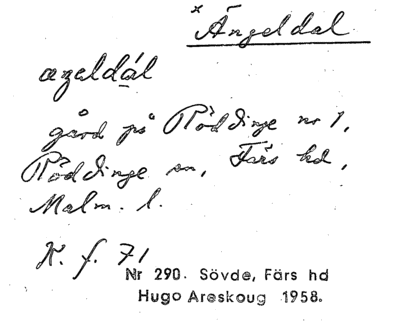 * Ängeldal
æŋeldál
gård på Röddinge nr 1,
Röddinge sn, Färs hd,
Malm. l.
K. f. 71
Nr 290. Sövde, Färs hd
Hugo Areskoug 1958.